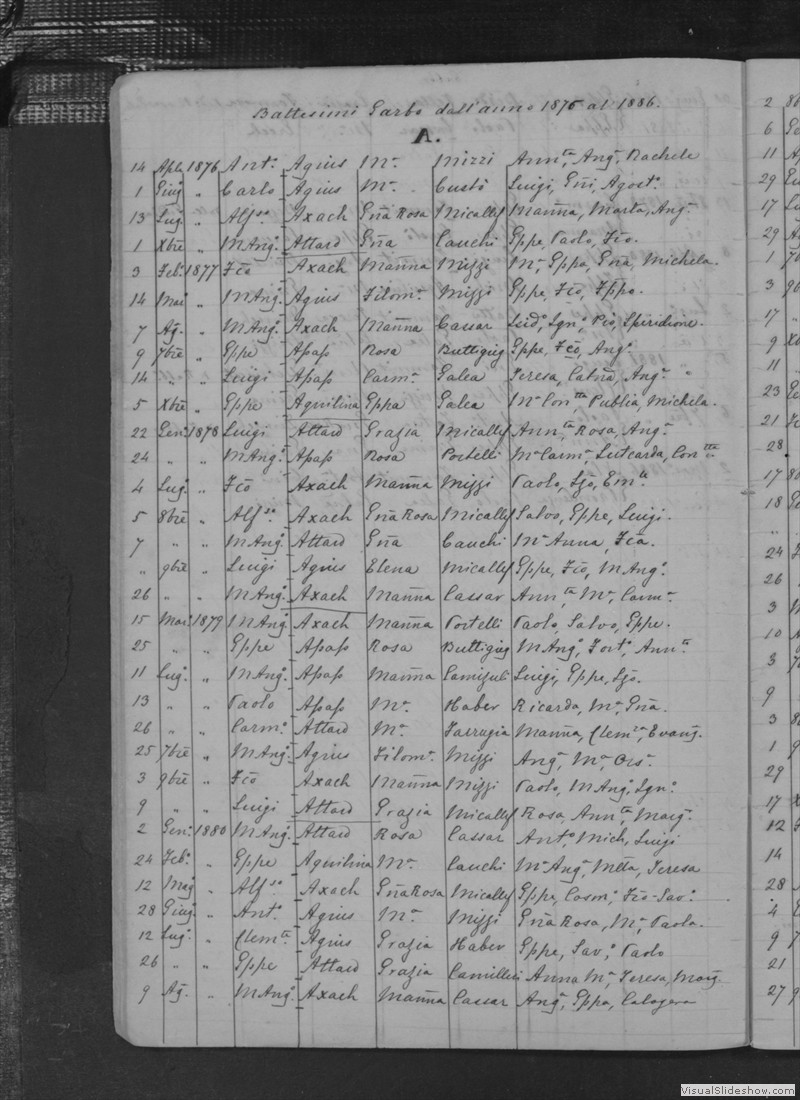 Battesimi Garbo dall'anno 1876 al 1886.
A.
14 Aple 1876 Anto. Agius Ma. Mizzi Annta, Anga, Rachele
1 Giugo „ Carlo Agius Ma. Custò Luigi, Gñi, Agosto.
13 Lugo „ Alfso Axach Gña Rosa Micallef Mañña, Marta, Anga.
1 Xbre „ MAngo. Attard Gña Cauchi Gppe, Paolo, Fcõ.
3 Febo. 1877 Fcõ Axach Mañña Mizzi Ma, Gppa, Gña, Michela.
14 Mar „ MAngo. Agius Filoma. Mizzi Gppe, Fcõ,
7 Ago. „ MAngo. Axach Mañña Cassar Igno, Pio, Spiridione.
9 7bre „ Gppe Apap Rosa Buttigieg Gppe, Fcõ, Ango.
14 „ „ Luigi Apap Carma. Galea Teresa, Catña, Anga.
5 Xbre „ Gppe Aquilina Gppa Galea Ma Contta Publia, Michela.
22 Geno. 1878 Luigi Attard Grazia Micallef Annta, Rosa, Anga.
24 „ „ MAngo. Apap Rosa Portelli Ma Carma. Lutcarda, Contta
4 Lugo. „ Fcõ Axach Mañña Mizzi Paolo, Emle
5 8bre „ Alfso. Axach Gña Rosa Micallef Salvo, Gppe, Luigi.
7 „ „ MAngo. Attard Gña Cauchi Ma Anna, Fca.
„ 9bre „ Luigi Agius Elena Micallef Gppe, Fcõ, MAngo.
26 „ „ MAngo. Axach Mañña Cassar Annta, Ma, Carma.
15 Mar. 1879 MAngo. Axach Mañña Portelli Paolo, Salvo, Gppe.
25 „ „ Gppe Apap Rosa Buttigieg MAngo, Forto, Annta
11 Lugo. „ MAngo. Apap Mañña Camisuli Luigi, Gppe,
13 „ „ Paolo Apap Ma. Haber Ricarda, Ma, Gña.
26 „ „ Carmo. Attard Ma. Farrugia Mañña, Clemza, Evang.
25 7bre „ MAngo. Agius Filoma. Mizzi Anga, Ma, Orsa.
3 9bre „ Fcõ Axach Mañña Mizzi Paolo, MAngo, Igno.
9 „ „ Luigi Attard Grazia Micallef Rosa, Annta, Marga.
2 Geno. 1880 MAngo. Attard Rosa Cassar Anto, Mich, Luigi
24 Febo. „ Gppe Aquilina Ma. Cauchi Ma Anga, Teresa
12 Mago „ Alfso Axach Gña Rosa Micallef Gppe, Cosmo, Fcõ-Savo.
28 Giugo „ Anto. Agius Ma. Mizzi Gña Rosa, Ma, Paola.
12 Lugo. „ Clemte Agius Grazia Haber Gppe, Savo, Paolo
26 „ „ Gppe Attard Grazia Camilleri Anna Ma, Teresa, Marga.
9 Ago. „ MAngo. Axach Mañña Cassar Anga, Gppa, Calogera
2
6
11
29
17
29
1
3
17
9
11
23
21
28
17
18
„
24
26
3
10
3
9
3
1
29
17
12
14
28
4
9
21
27
VisualSlideshow.com